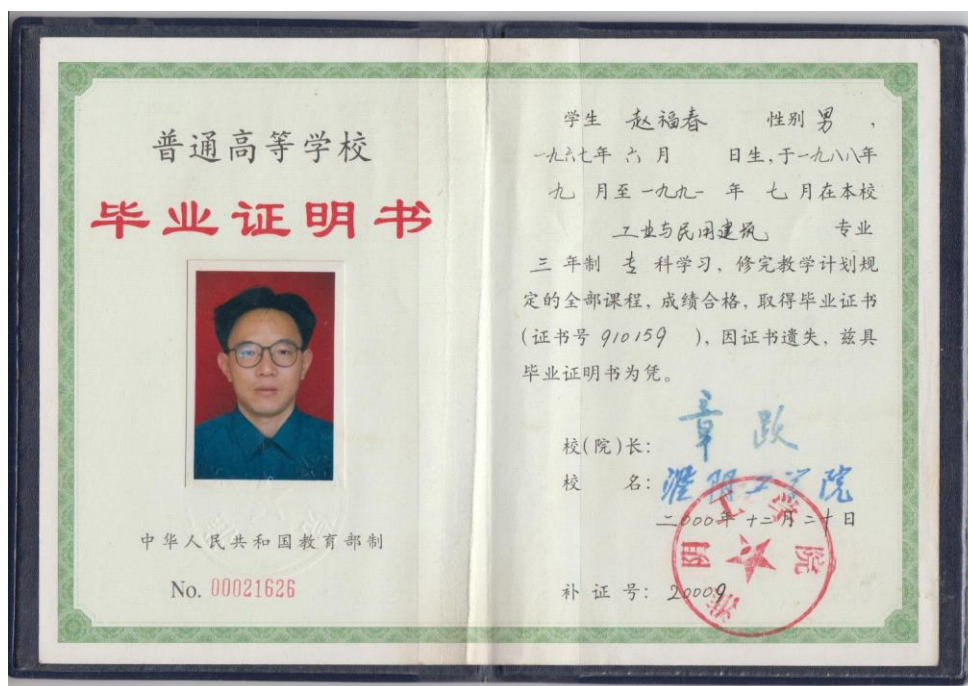 普通高等学校
毕业证明书
中华人民共和国教育部制
No. 00021626
学生 赵福春 性别 男 ，
一九六七年 六 月 日生，于一九八八年
九 月至一九九一 年 七 月在本校
工业与民用建筑 专业
三 年制 专 科学习，修完教学计划规
定的全部课程，成绩合格，取得毕业证书
(证书号 910159 )，因证书遗失，兹具
毕业证明书为凭。
校(院)长: 章跃
校 名: 淮阴工学院
二000年 十二月 二十日
补 证 号: 20009
淮阴工学院